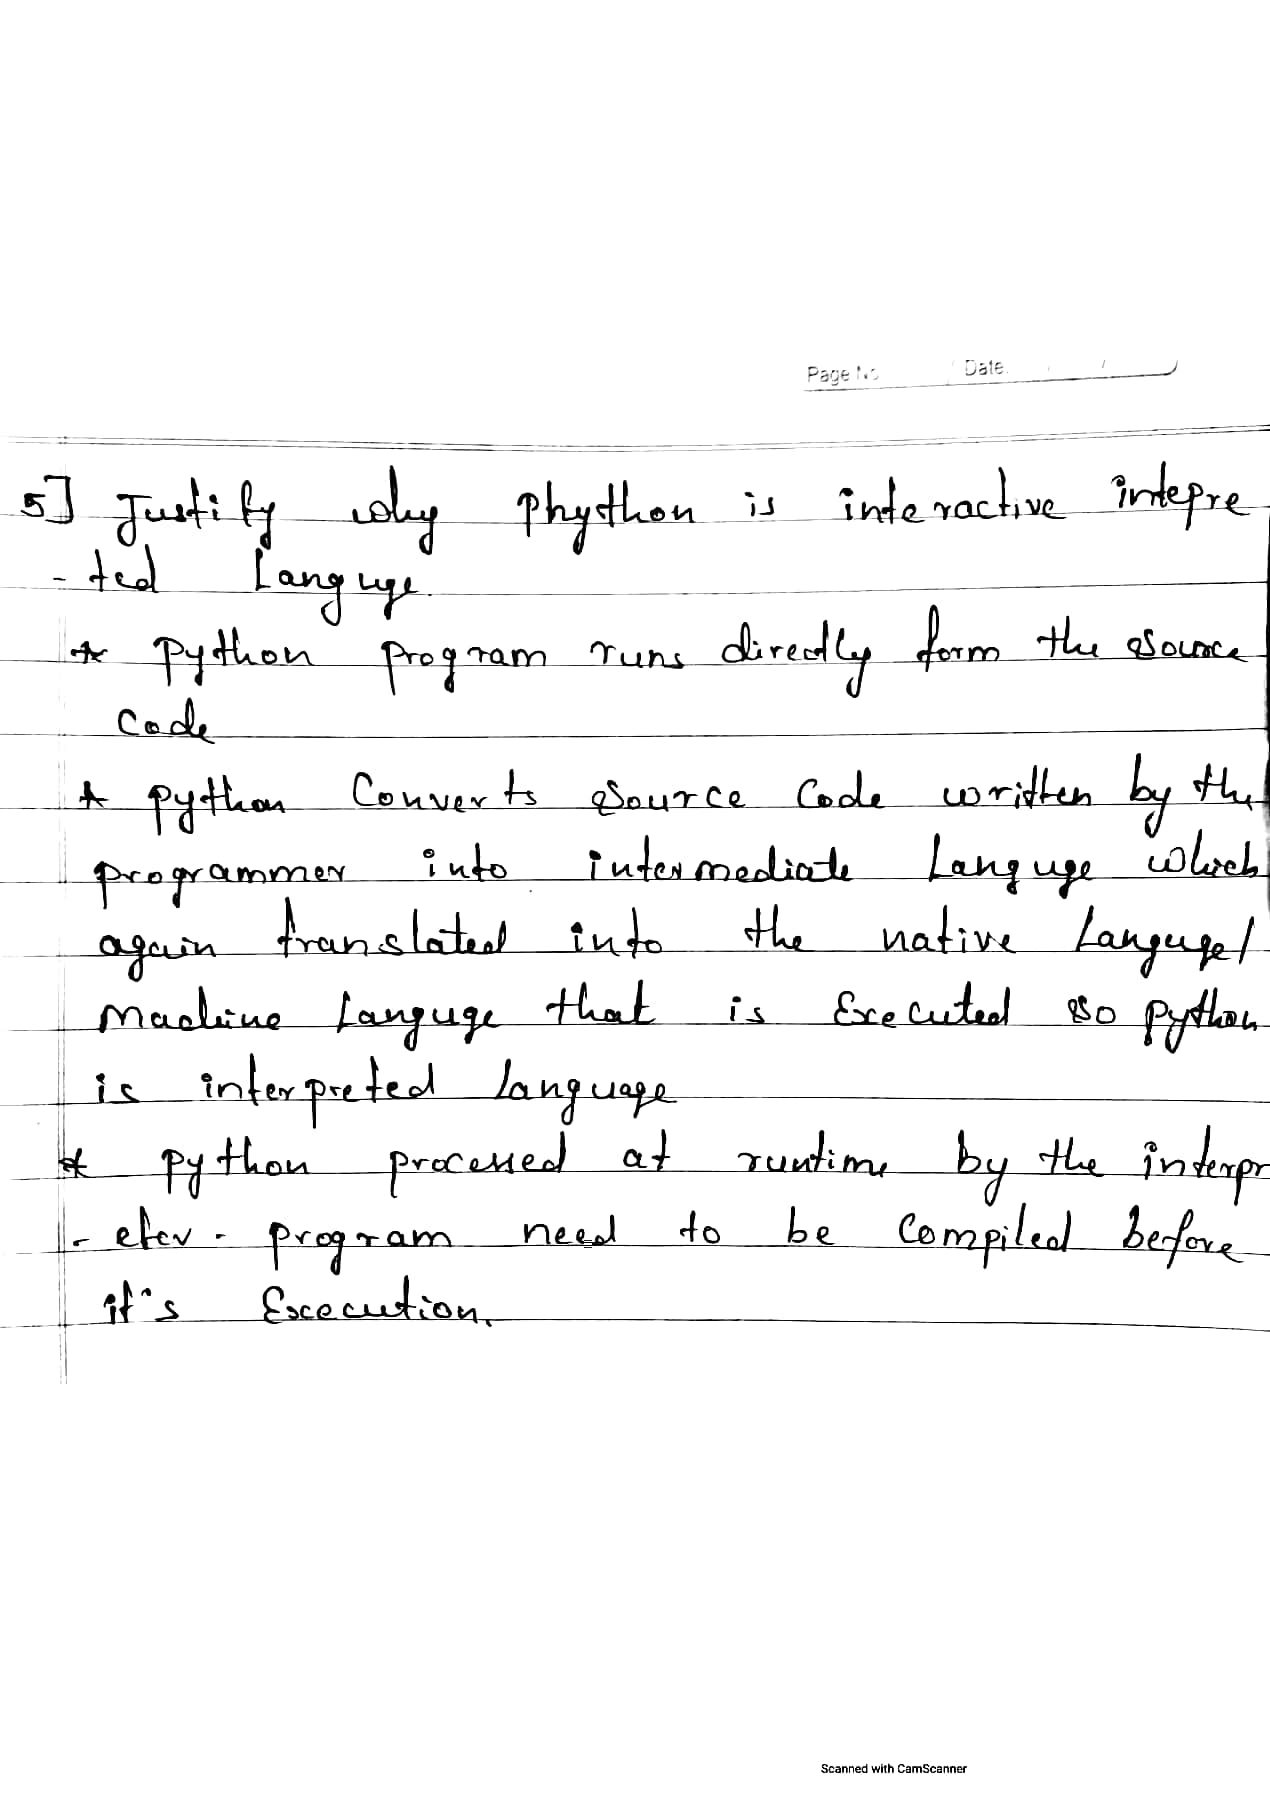 Page No Date.
5] Justify why phython is interactive intepre
-ted Languge.
* python program runs directly form the source
code
* python Converts source code written by the
programmer into intermediate Languge which
again translated into the native Languge/
Machine Languge that is Excecuted so python
is interpreted language
* python processed at runtime by the interpr
-eter. program need to be compiled before
it's Excecution.
Scanned with CamScanner